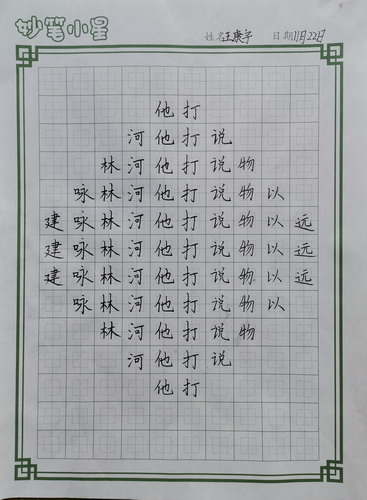 妙笔小星
姓名王康宇 日期11月22日
他打
河他打说
林河他打说物
咏林河他打说物以
建咏林河他打说物以远
建咏林河他打说物以远
建咏林河他打说物以远
咏林河他打说物以
林河他打说物
河他打说
他打